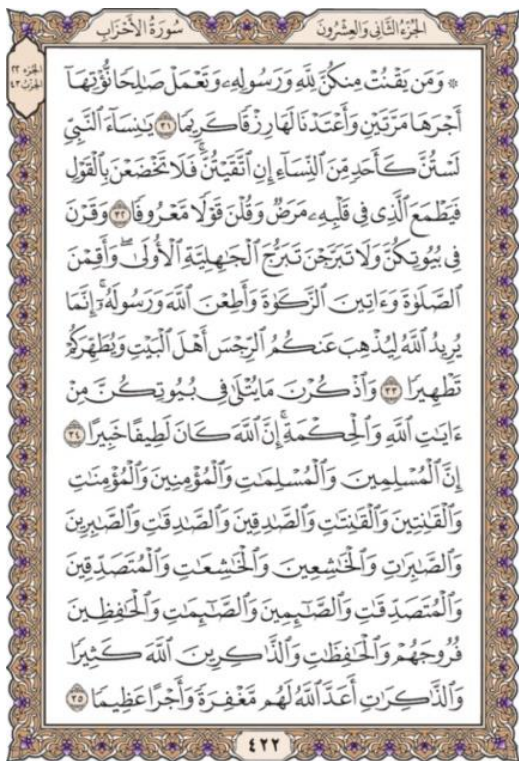 الجزء الثاني والعشرون
سورة الأحزاب
الجزء ٢٢
الحزب ٤٣
۞ وَمَن يَقْنُتْ مِنكُنَّ لِلَّهِ وَرَسُولِهِۦ وَتَعْمَلْ صَٰلِحًا نُّؤْتِهَآ
أَجْرَهَا مَرَّتَيْنِ وَأَعْتَدْنَا لَهَا رِزْقًا كَرِيمًا ٣١ يَٰنِسَآءَ ٱلنَّبِىِّ
لَسْتُنَّ كَأَحَدٍ مِّنَ ٱلنِّسَآءِ إِنِ ٱتَّقَيْتُنَّ ۚ فَلَا تَخْضَعْنَ بِٱلْقَوْلِ
فَيَطْمَعَ ٱلَّذِى فِى قَلْبِهِۦ مَرَضٌ وَقُلْنَ قَوْلًا مَّعْرُوفًا ٣٢ وَقَرْنَ
فِى بُيُوتِكُنَّ وَلَا تَبَرَّجْنَ تَبَرُّجَ ٱلْجَٰهِلِيَّةِ ٱلْأُولَىٰ ۖ وَأَقِمْنَ
ٱلصَّلَوٰةَ وَءَاتِينَ ٱلزَّكَوٰةَ وَأَطِعْنَ ٱللَّهَ وَرَسُولَهُۥٓ ۚ إِنَّمَا
يُرِيدُ ٱللَّهُ لِيُذْهِبَ عَنكُمُ ٱلرِّجْسَ أَهْلَ ٱلْبَيْتِ وَيُطَهِّرَكُمْ
تَطْهِيرًا ٣٣ وَٱذْكُرْنَ مَا يُتْلَىٰ فِى بُيُوتِكُنَّ مِنْ
ءَايَٰتِ ٱللَّهِ وَٱلْحِكْمَةِ ۚ إِنَّ ٱللَّهَ كَانَ لَطِيفًا خَبِيرًا ٣٤
إِنَّ ٱلْمُسْلِمِينَ وَٱلْمُسْلِمَٰتِ وَٱلْمُؤْمِنِينَ وَٱلْمُؤْمِنَٰتِ
وَٱلْقَٰنِتِينَ وَٱلْقَٰنِتَٰتِ وَٱلصَّٰدِقِينَ وَٱلصَّٰدِقَٰتِ وَٱلصَّٰبِرِينَ
وَٱلصَّٰبِرَٰتِ وَٱلْخَٰشِعِينَ وَٱلْخَٰشِعَٰتِ وَٱلْمُتَصَدِّقِينَ
وَٱلْمُتَصَدِّقَٰتِ وَٱلصَّٰٓئِمِينَ وَٱلصَّٰٓئِمَٰتِ وَٱلْحَٰفِظِينَ
فُرُوجَهُمْ وَٱلْحَٰفِظَٰتِ وَٱلذَّٰكِرِينَ ٱللَّهَ كَثِيرًا
وَٱلذَّٰكِرَٰتِ أَعَدَّ ٱللَّهُ لَهُم مَّغْفِرَةً وَأَجْرًا عَظِيمًا ٣٥
٤٢٢